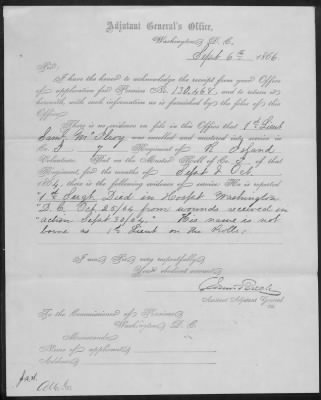 Adjutant General's Office,
Washington, D. C.
Sept 6th, 1866
Sir:
I have the honor to acknowledge the receipt from your Office
of application for Pension No. 130.468, and to return it
herewith, with such information as is furnished by the files of this
Office.
There is no evidence on file in this Office that 1st Lieut
Saml McIlroy was enrolled and mustered into service in
Co. 7 Regiment of R Island
Volunteers. But on the Muster Roll of Co. of that
Regiment, for the months of Sept & Oct,
1864, there is the following evidence of service: He is reported
"1st Sergt Died in Hospt Washington
D.C. Oct 25/64 from wounds received in
action Sept 30/64." His name is not
borne as 1st Lieut on the Rolls.
I am, Sir, very respectfully,
Your obedient servant,
Assistant Adjutant General.
To the Commissioner of Pensions
Washington, D. C.
Memoranda:
Name of applicant,
Address,